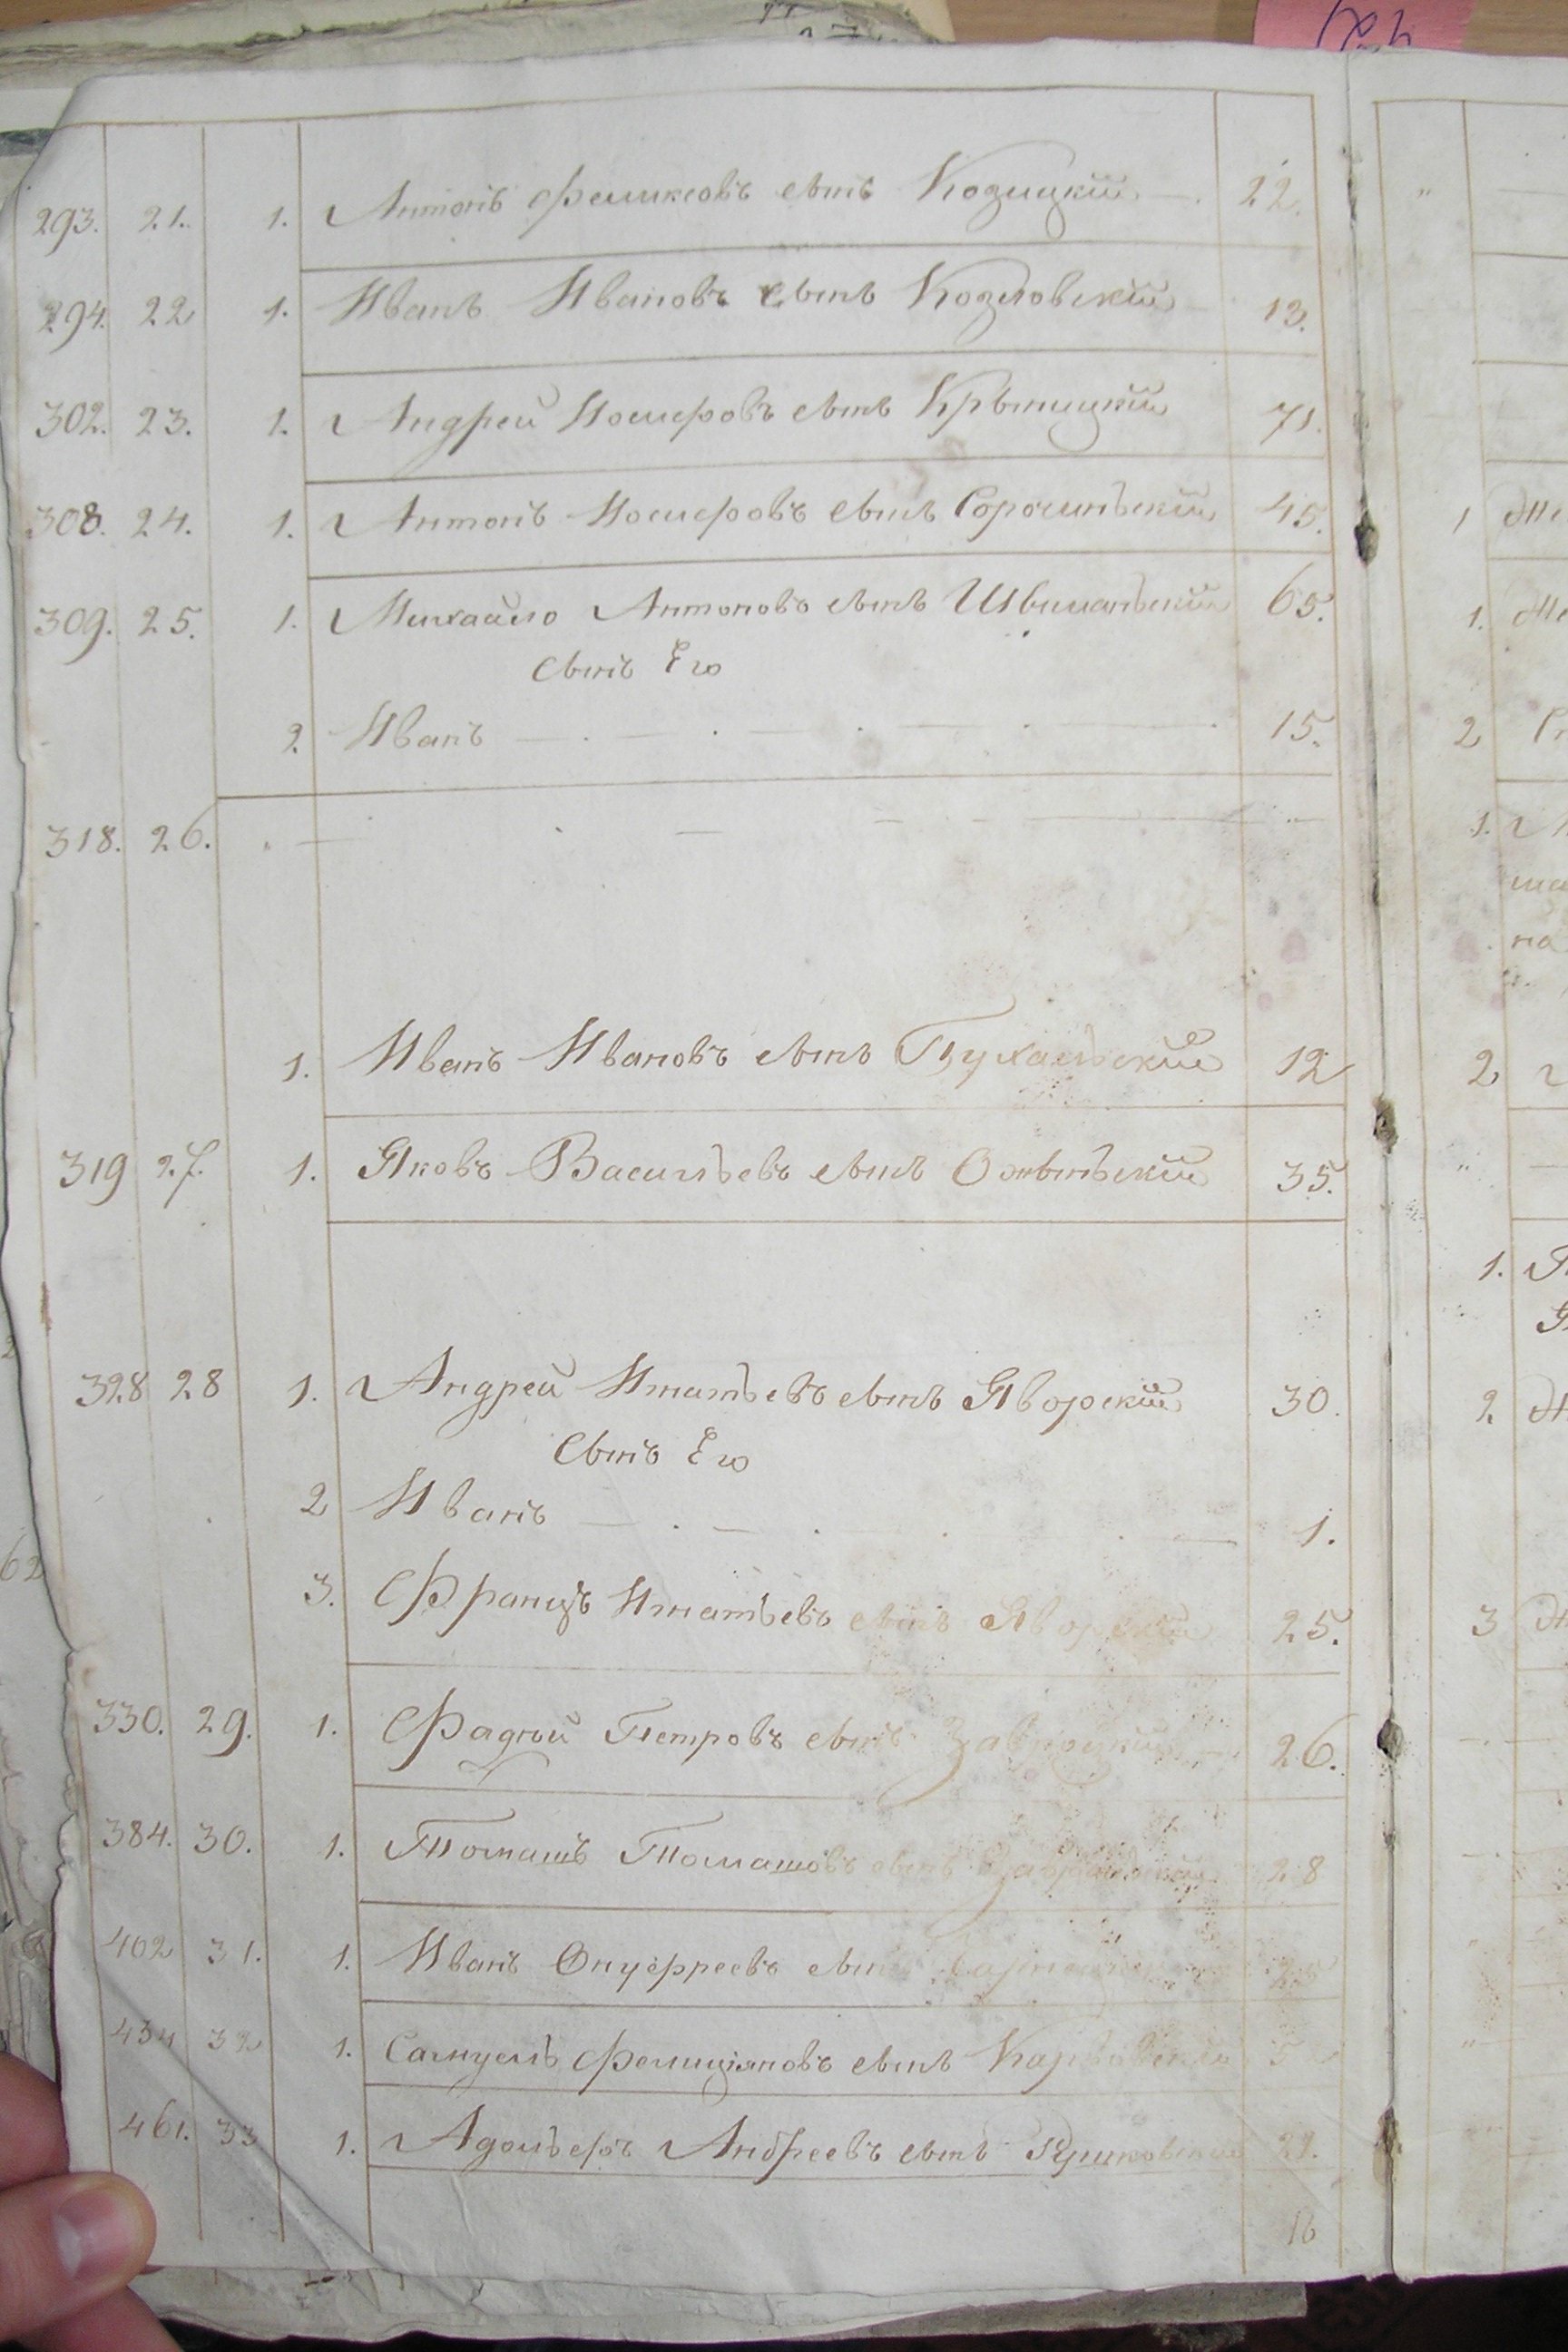 293. 21. 1. Антонъ Феликсовъ сынъ Козицкій 22.
294. 22 1. Иванъ Ивановъ сынъ Козловскій 13.
302. 23. 1. Андрей Іосифовъ сынъ Крыницкій 71.
308. 24. 1. Антонъ Іосифовъ сынъ Сорочинскій 45.
309. 25. 1. Михайло Антоновъ сынъ 65.
сынъ Его
2. Иванъ 15.
318. 26.
1. Иванъ Ивановъ сынъ Пухальскій 12
319 27. 1. Яковъ Васильевъ сынъ 35.
328 28 1. Андрей Игнатьевъ сынъ Яворскій 30.
Сынъ Его
2 Иванъ 1.
3. Францъ Игнатьевъ сынъ Яворскій 25.
330. 29. 1. Фадѣй Петровъ сынъ Завроцкій 26.
384. 30. 1. Томашъ Томашовъ сынъ 28
402 31. 1. Иванъ Онуфреевъ сынъ
434 32 1. Самуелъ Фелиціяновъ сынъ 5
461. 33 1. Адольфъ Андреевъ сынъ
1
1.
2
1.
2
1.
2
3